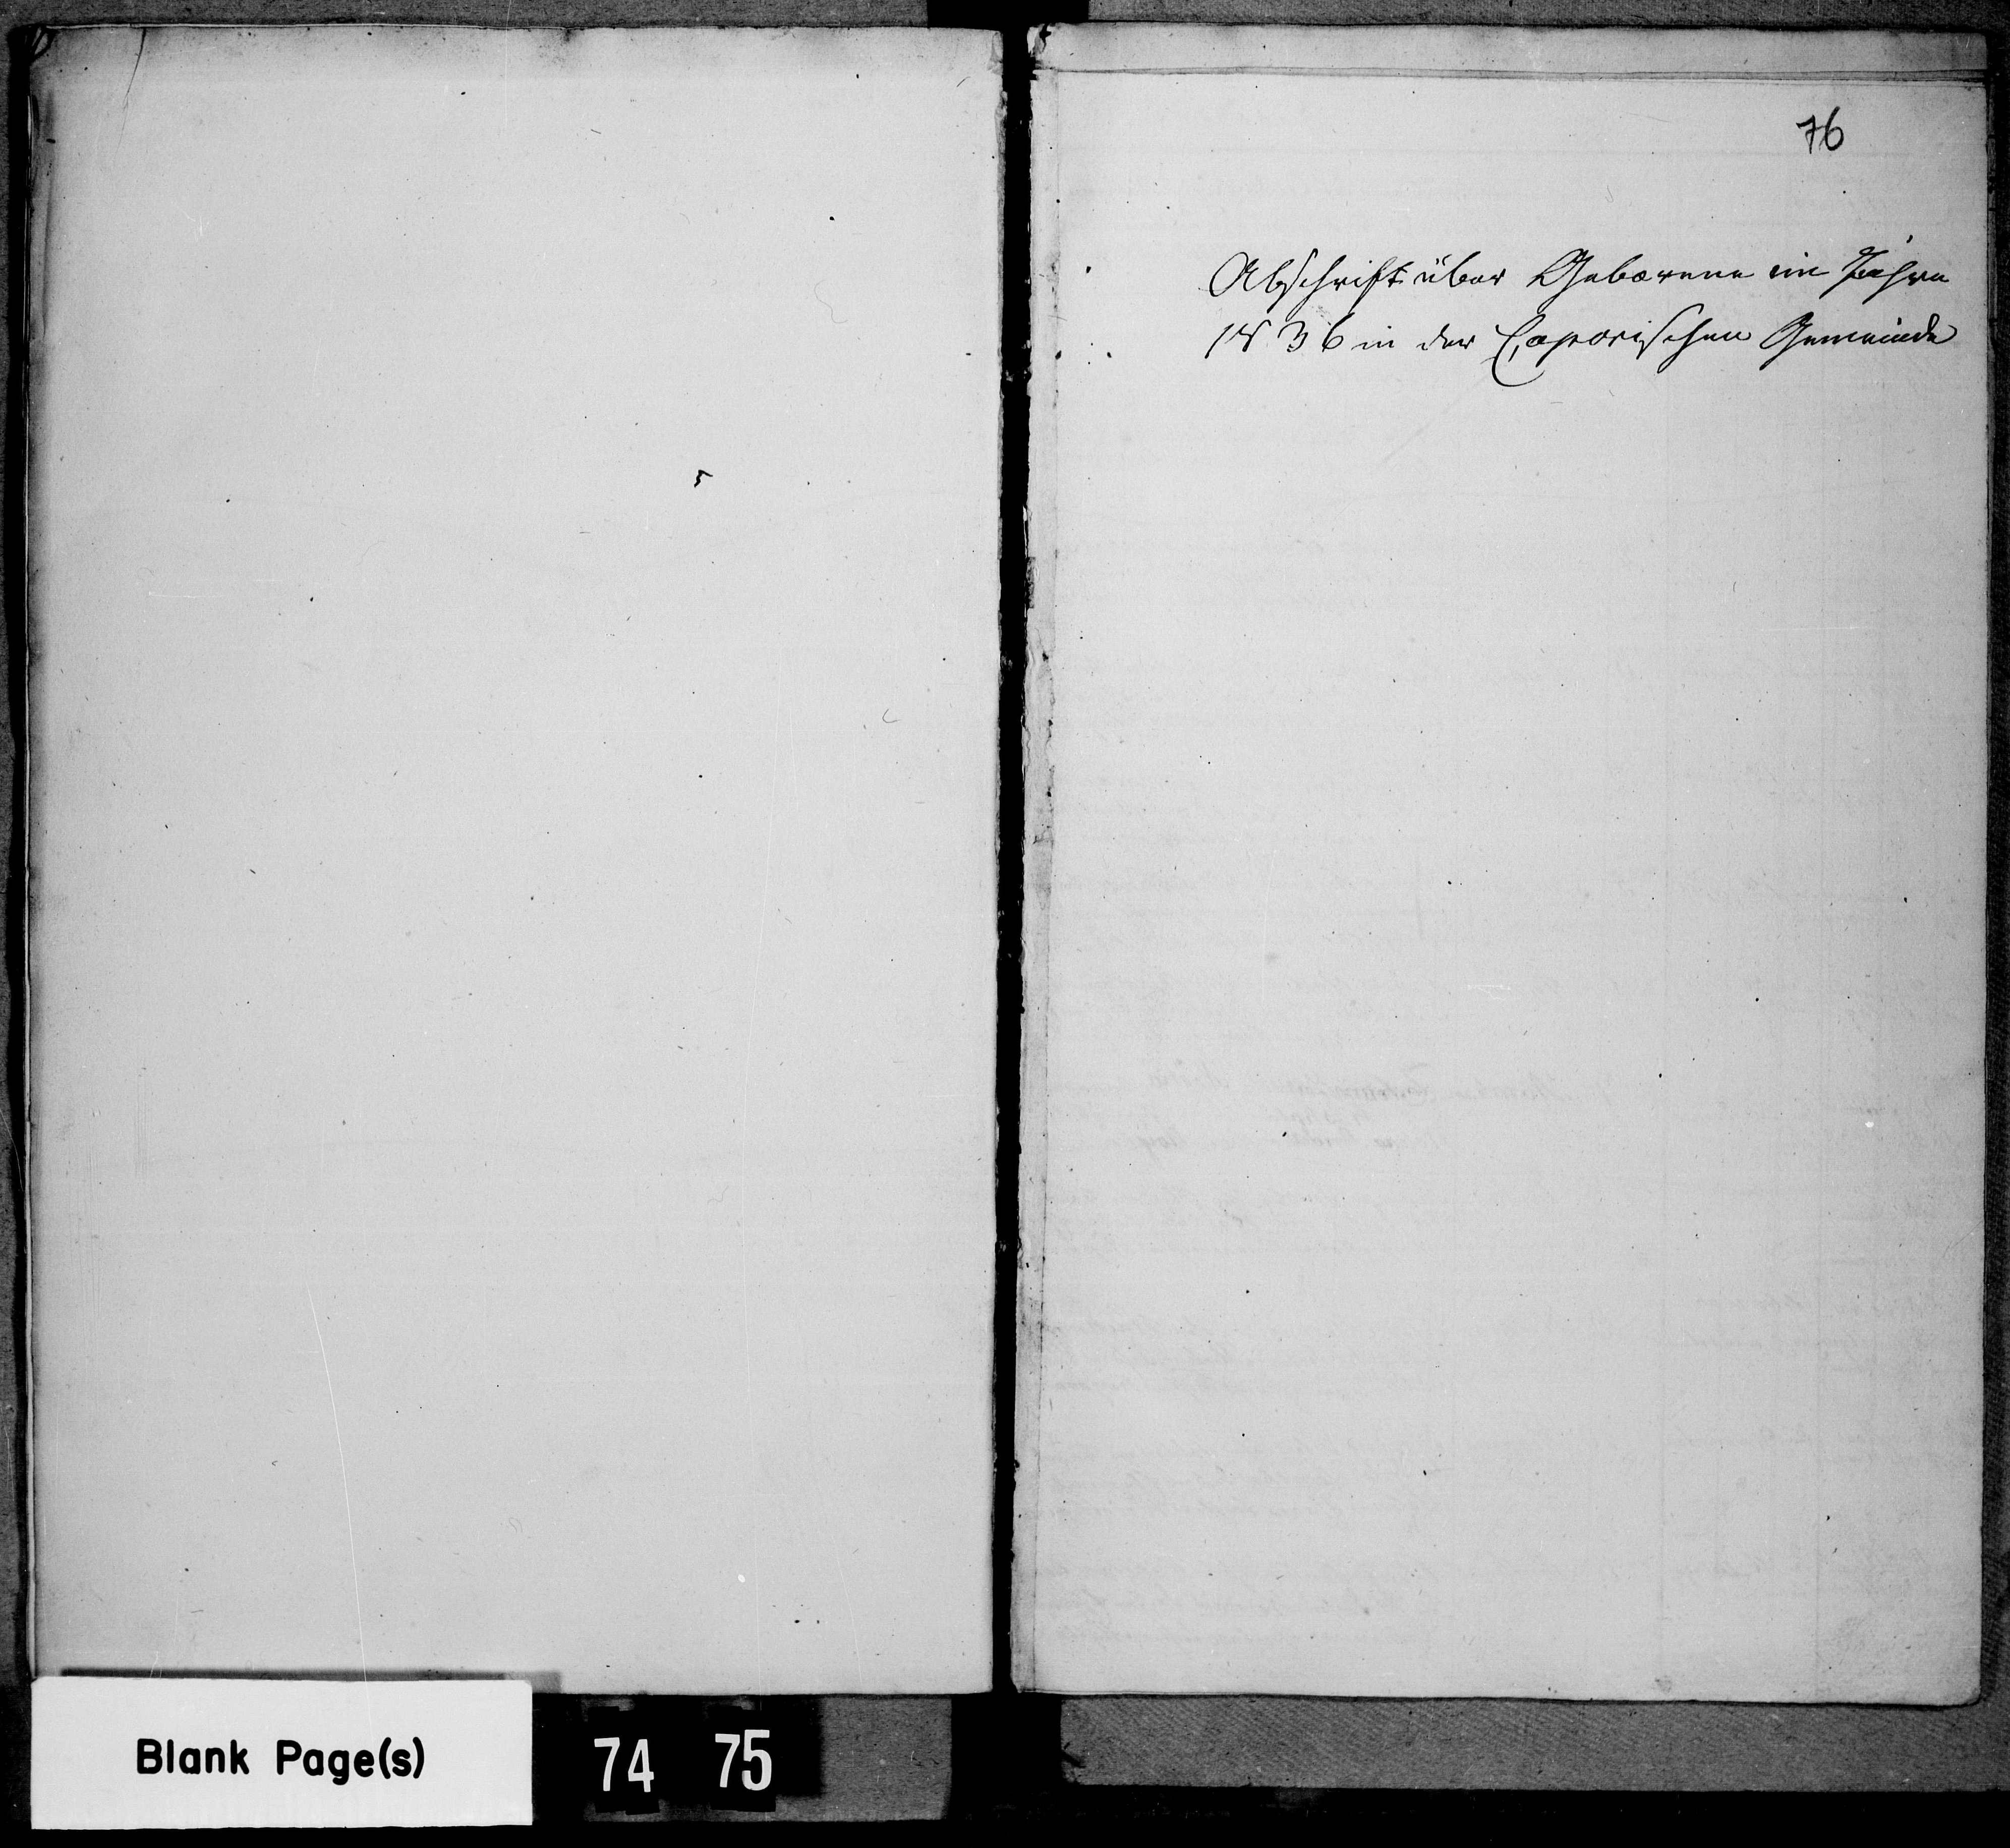 76
Abschrift über Geborene im Jahre
1836 in der Caporischen Gemeinde
Blank Page(s)
74 75